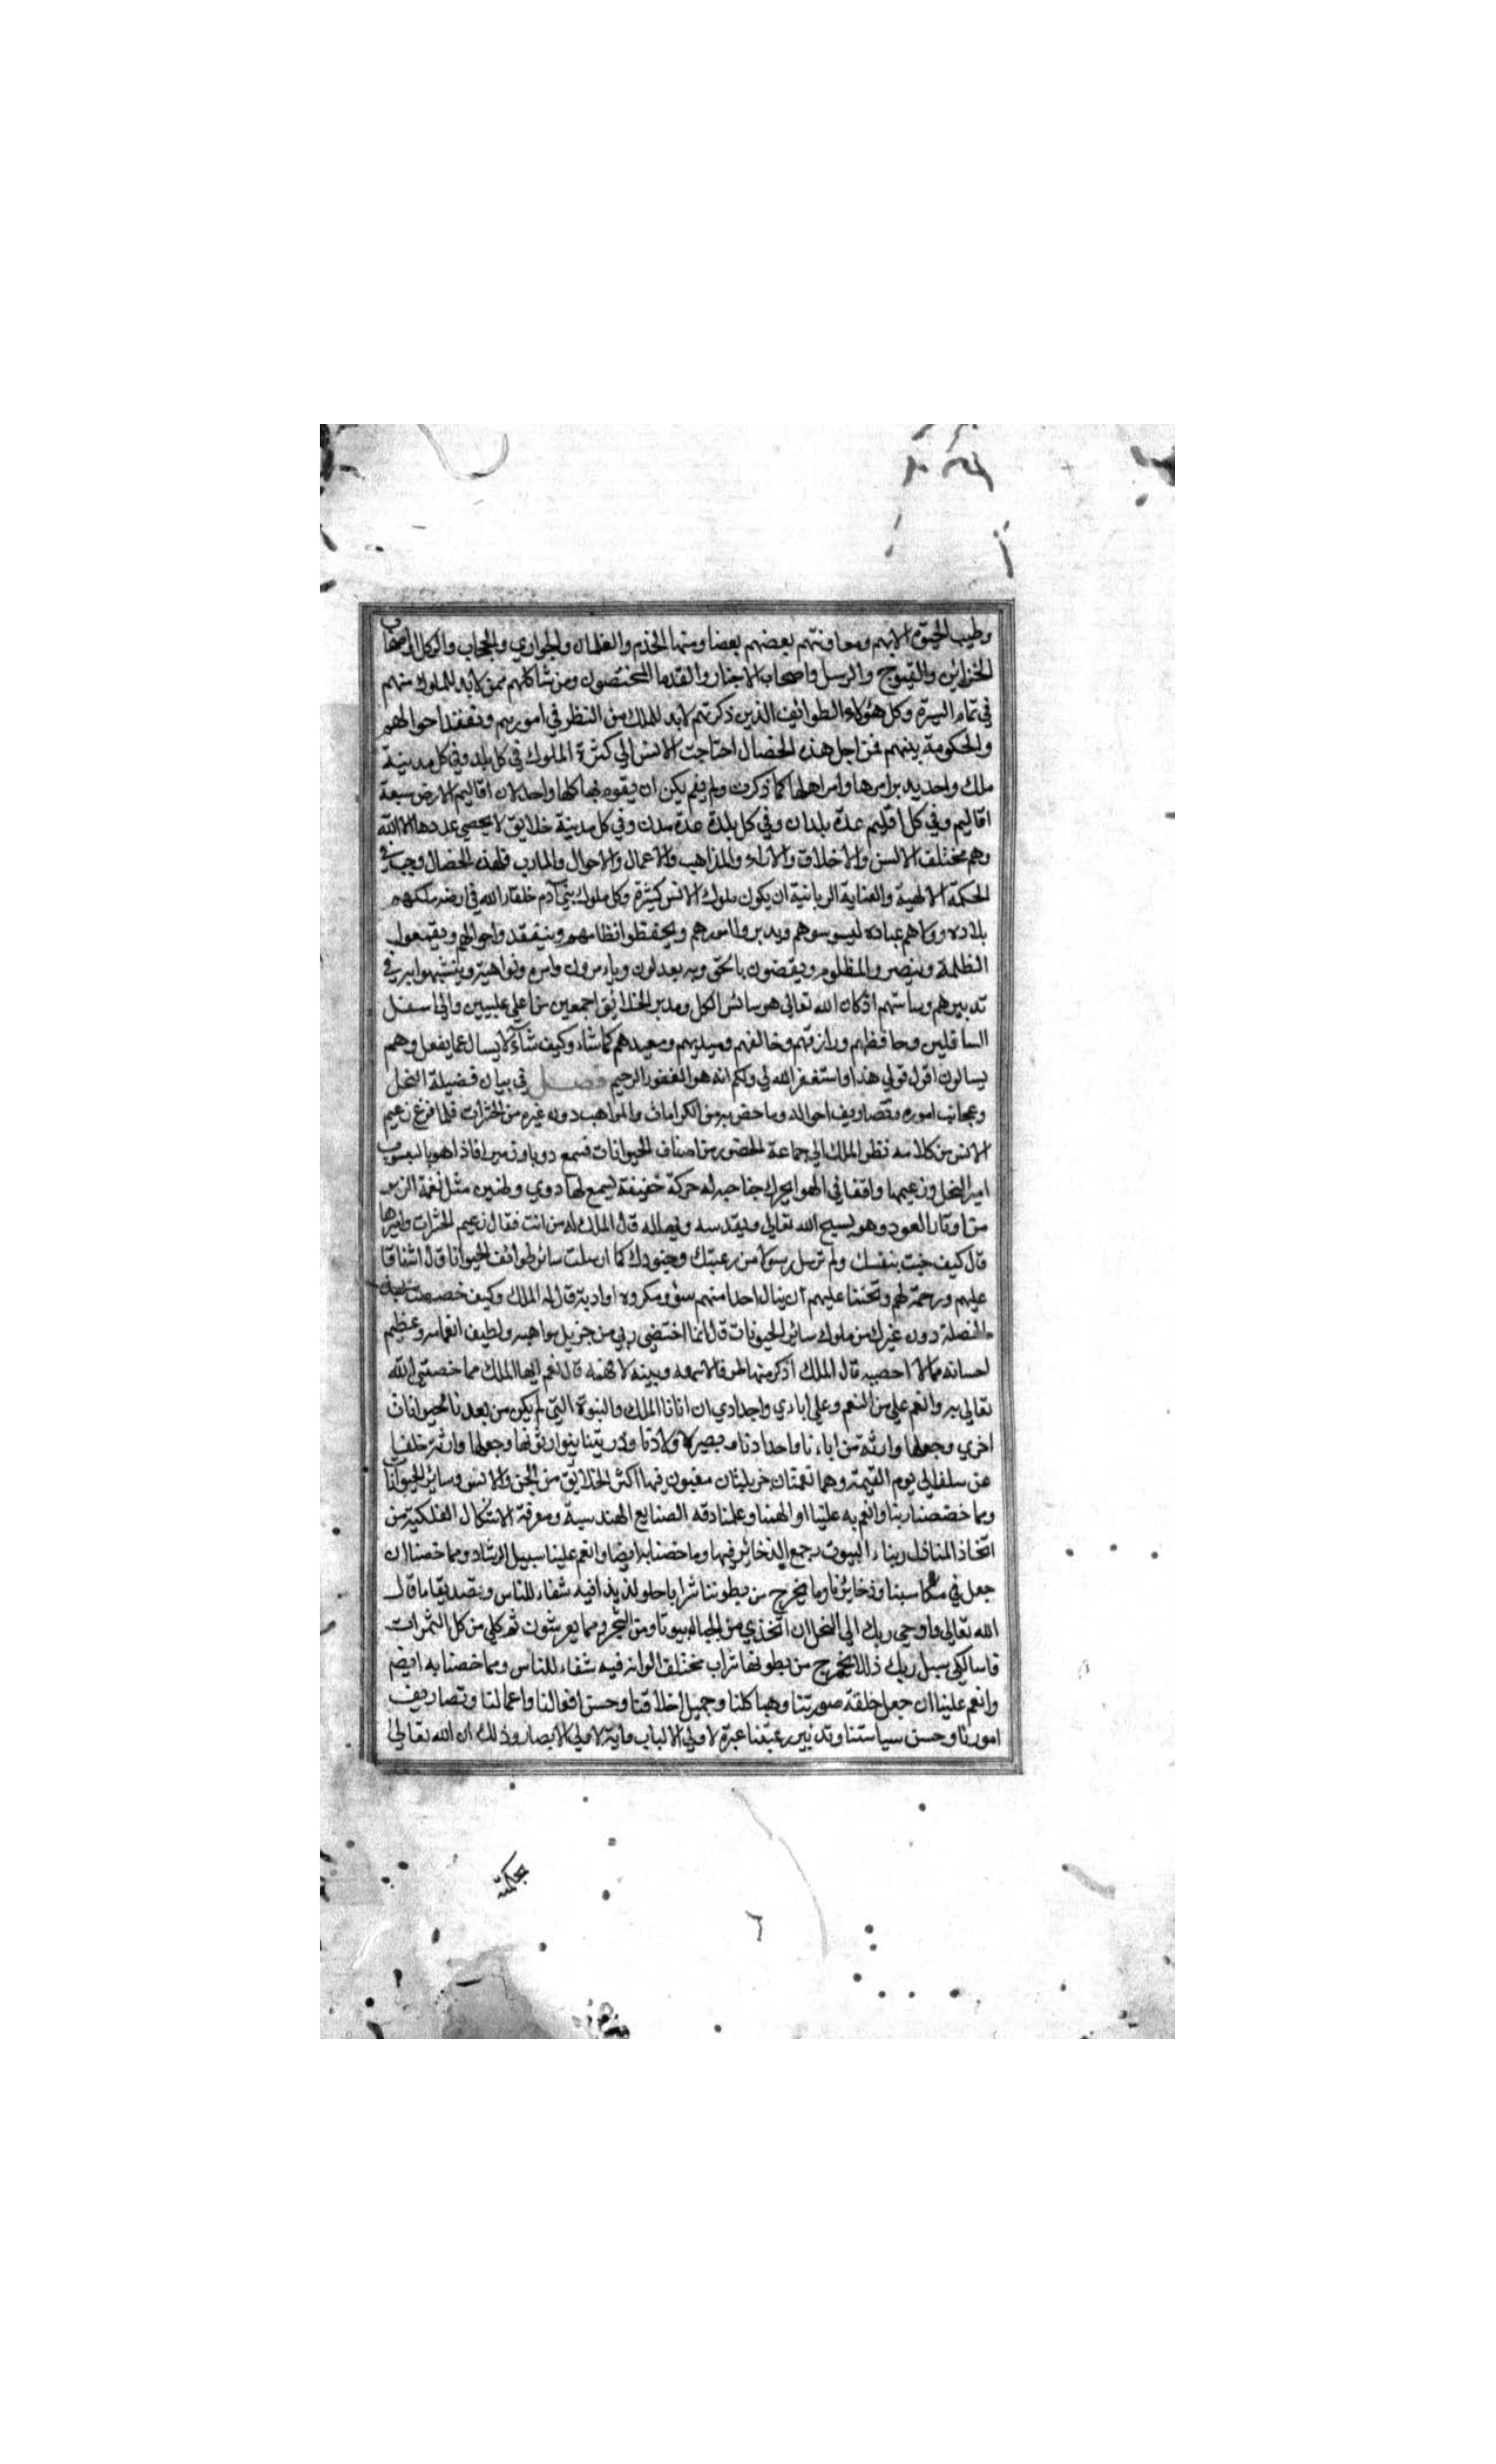 وطيب الحيوة الا بهم ومعاونتهم بعضهم بعضا ومنها الخدم والغلمان والجواري والحجاب والوكلا واصحاب
الخزاين والفيوج والرسل واصحاب الاخبار والندما المختصون ومن شاكلهم ممن لابد للملوك منهم
في تمام السيرة وكل هؤلاء الطوائف الذين ذكرتهم لابد للملك من النظر في امورهم وتفقد احوالهم
والحكومة بينهم فمن اجل هذه الخصال احتاجت الانس الي كثرة الملوك في كل بلد وفي كل مدينة
ملك واحد يدبر امرها وامر اهلها كما ذكرت ولم يكن ان يقوم بها كلها واحد لان اقاليم الارض سبعة
اقاليم وفي كل اقليم عدة بلدان وفي كل بلدة عدة مدن وفي كل مدينة خلايق لا يحصي عددها الا الله
وهم مختلف الالسن والاخلاق والاراء والمذاهب والاعمال والاحوال والمارب فلهذه الخصال وجب في
الحكمة الالهية والعناية الربانية ان يكون ملوك الانس كثيرة وكل ملوك بني آدم خلفاء الله في ارضه ملكهم
بلاده وولاهم عباده ليسوسوهم ويدبروا امورهم ويحفظوا نظامهم ويتفقدوا احوالهم ويقمعوا
الظلمة وينصروا المظلوم ويقضون بالحق وبه يعدلون ويامرون باوامره ونواهيه ويتشبهوا به في
تدبيرهم وسياستهم اذ كان الله تعالي هو سائس الكل ومدبر الخلائق اجمعين من اعلي عليين والي اسفل
السافلين وحافظهم ورازقهم وخالقهم ومبديهم ومعيدهم كما شاء وكيف شآء لا يسال عما يفعل وهم
يسالون اقول قولي هذا واستغفر الله لي ولكم انه هو الغفور الرحيم فصل في بيان فضيلة النحل
وعجائب اموره وتصاريف احواله وما خص به من الكرامات والمواهب دون غيره من الحشرات فلما فرغ زعيم
الانس من كلامه نظر الملك الي جماعة الحضور من اصناف الحيوانات فسمع دويا وزميرا فاذا هو باليعسوب
امير النحل وزعيمها واقفا في الهوا يحرك جناحيه له حركة خفيفة يسمع لها دوي وطنين مثل نغمة الزير
من اوتار العود وهو يسبح الله تعالي ويقدسه ويهلله قال الملك له من انت فقال زعيم الحشرات واميرها
قال كيف جيت بنفسك ولم ترسل رسولا من رعيتك وجنودك كما ارسلت سائر طوائف الحيوانا قال اشفاقا
عليهم ورحمة لهم وتحننا عليهم ان ينال احدا منهم سؤ ومكروه او اذية قال له الملك وكيف خصصت بهذه
الخصلة دون غيرك من ملوك سائر الحيونات قال انما اختصني ربي من جزيل مواهبه ولطيف انعامه وعظيم
احسانه ممالا احصيه قال الملك اذكر منها طرفا لاسمعه وبينه لافهمه قال نعم ايها الملك مما خصني الله
تعالي به وانعم علي من النعم وعلي اباءي واجدادي ان اتانا الملك والنبوة التي لم يكن من بعدنا لحيوانات
اخري وجعلها وارثة من اباءنا واجدادنا مصير لاولادنا وذريتنا يتوارثونها وجعلها وارثة خلفا
عن سلف الي يوم القيمة وهما نعمتان جزيلتان مغبون فيهما اكثر الخلايق من الجن والانس وسائر الحيوانات
ومما خصصنا ربنا وانعم به علينا او الهمنا وعلمنا دقه الصنايع الهندسية ومعرفة الاشكال الفلكية من
اتخاذ المنازل وبناء البيوت وجمع الذخائر فيها ومما خصنا به ايضا وانعم علينا سبيل الرشاد ومما خصنا ان
جعل في مكاسبنا وذخايرنا وما يخرج من بطوننا شرابا حلو لذيذا فيه شفاء للناس وتصديقا ما قال
الله تعالي واوحي ربك الي النحل ان اتخذي من الجبال بيوتا ومن الشجر ومما يعرشون ثم كلي من كل الثمرات
فاسلكي سبل ربك ذللا يخرج من بطونها شراب مختلف الوانه فيه شفاء للناس ومما خصنا به ايضم
وانعم علينا ان جعل خلقة صورتنا وهياكلنا وجميل اخلاقنا وحسن افعالنا واعمالنا وتصاريف
امورنا وحسن سياستنا وتدبير رعيتنا عبرة لاولي الالباب واية لاولي الابصار وذلك ان الله تعالي
بحكمته